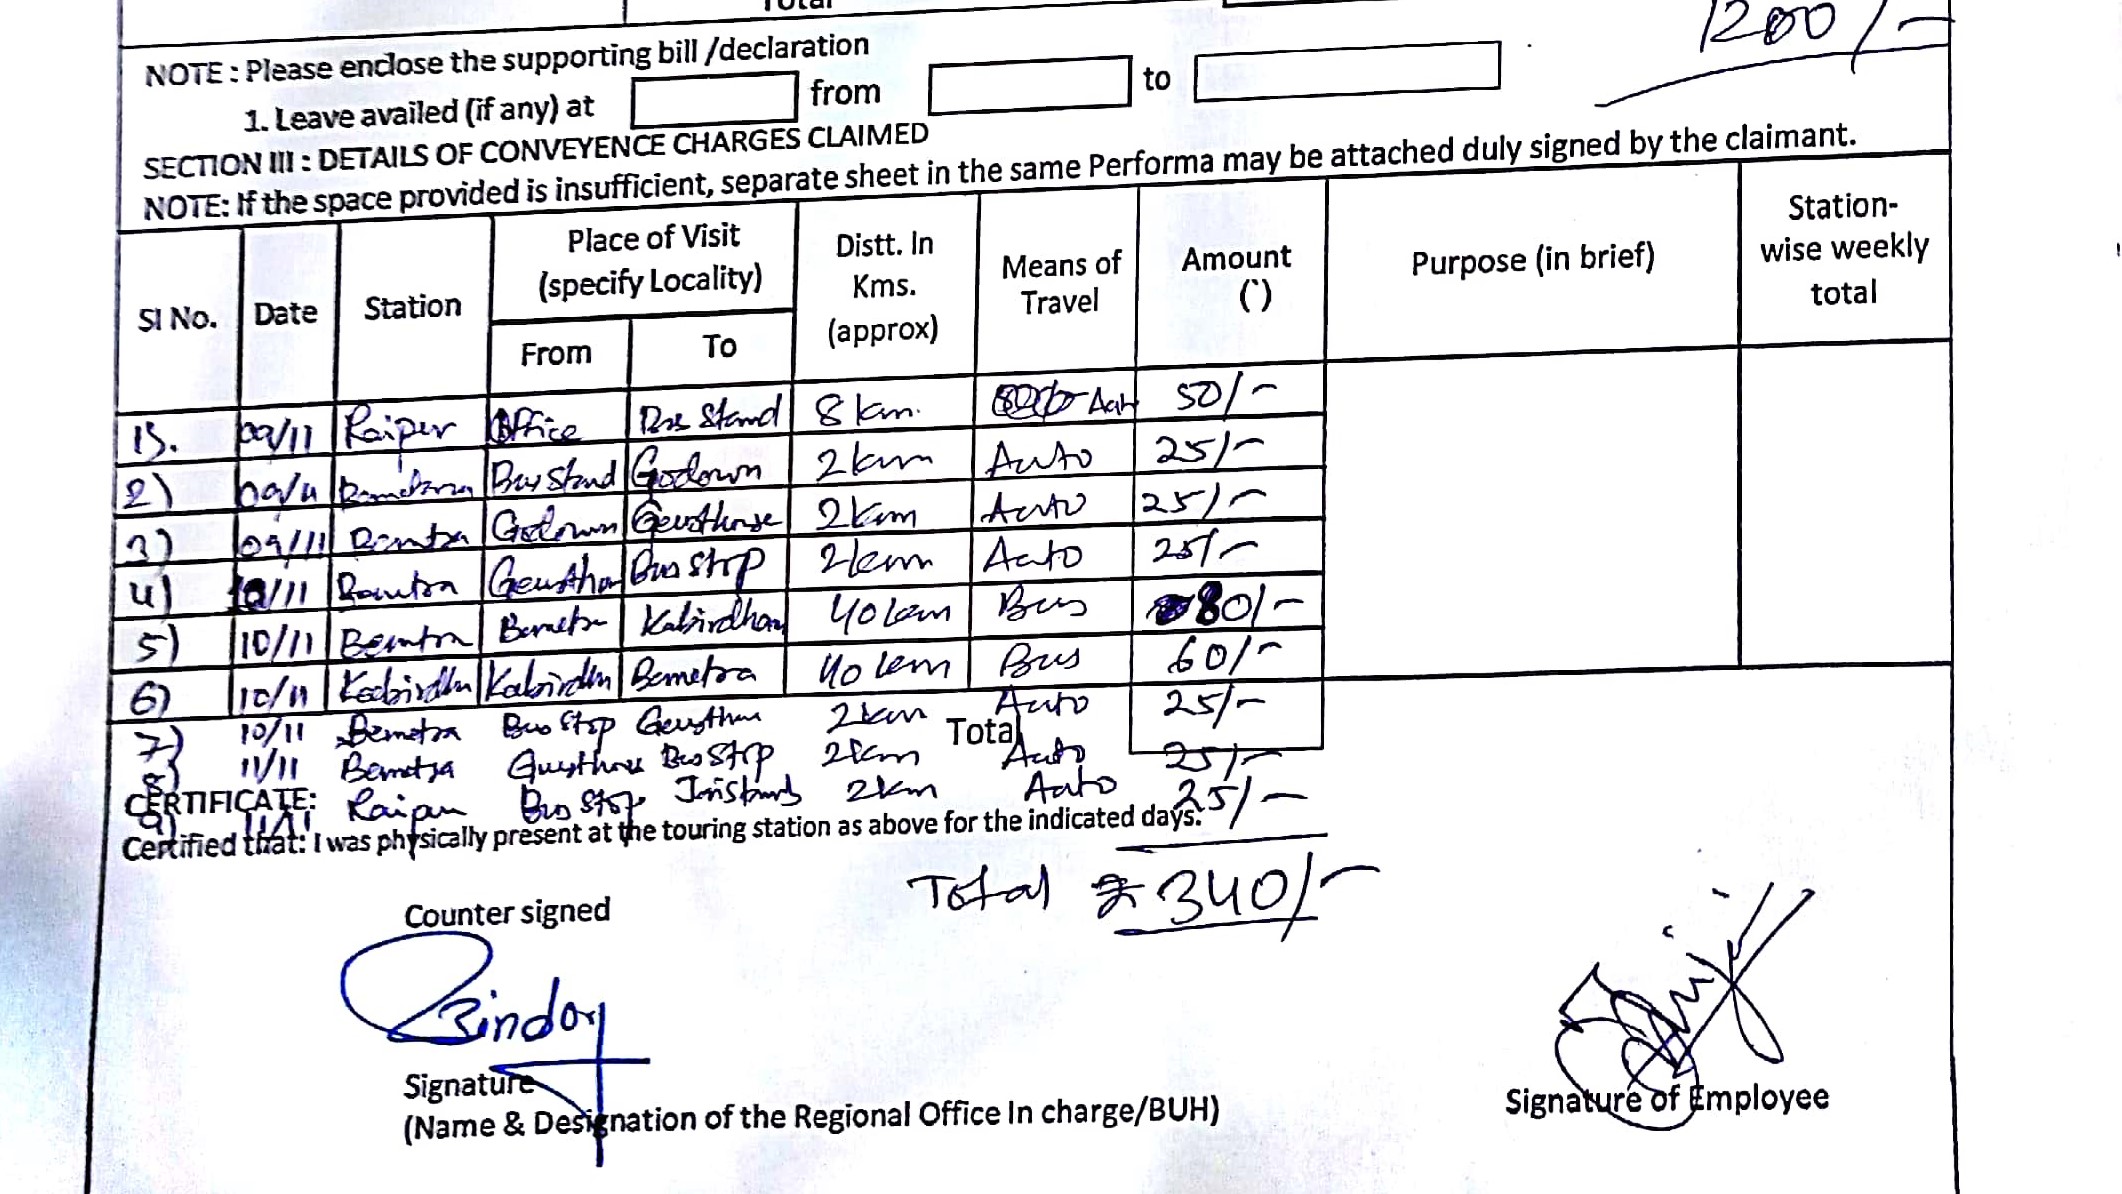 Total
1200/-
NOTE : Please enclose the supporting bill /declaration
1. Leave availed (if any) at from to
SECTION III : DETAILS OF CONVEYENCE CHARGES CLAIMED
NOTE: If the space provided is insufficient, separate sheet in the same Performa may be attached duly signed by the claimant.
Sl No. Date Station Place of Visit (specify Locality) From To Distt. In Kms. (approx) Means of Travel Amount (`) Purpose (in brief) Station-wise weekly total
1). 09/11 Raipur Office Bus Stand 8 km. Auto 50/-
2) 09/11 Bus Stand Godown 2 km Auto 25/-
3) 09/11 Bemtra Godown Guesthouse 2 km Auto 25/-
4) 10/11 Bemtra Bus Stop 2 km Auto 25/-
5) 10/11 Bemtra Bemetra Kabirdham 40 km Bus 80/-
6) 10/11 Kabirdhm Kabirdhm Bemetra 40 km Bus 60/-
7) 10/11 Bemetra Bus Stop Gusthm 2 km Auto 25/-
Total
8) 11/11 Bemetra Guesthouse Bus Stop 2 km Auto 25/-
9) 11/11 Raipur Bus Stop 2 km Auto 25/-
CERTIFICATE:
Certified that: I was physically present at the touring station as above for the indicated days.
Total ₹ 340/-
Counter signed
Signature
(Name & Designation of the Regional Office In charge/BUH)
Signature of Employee